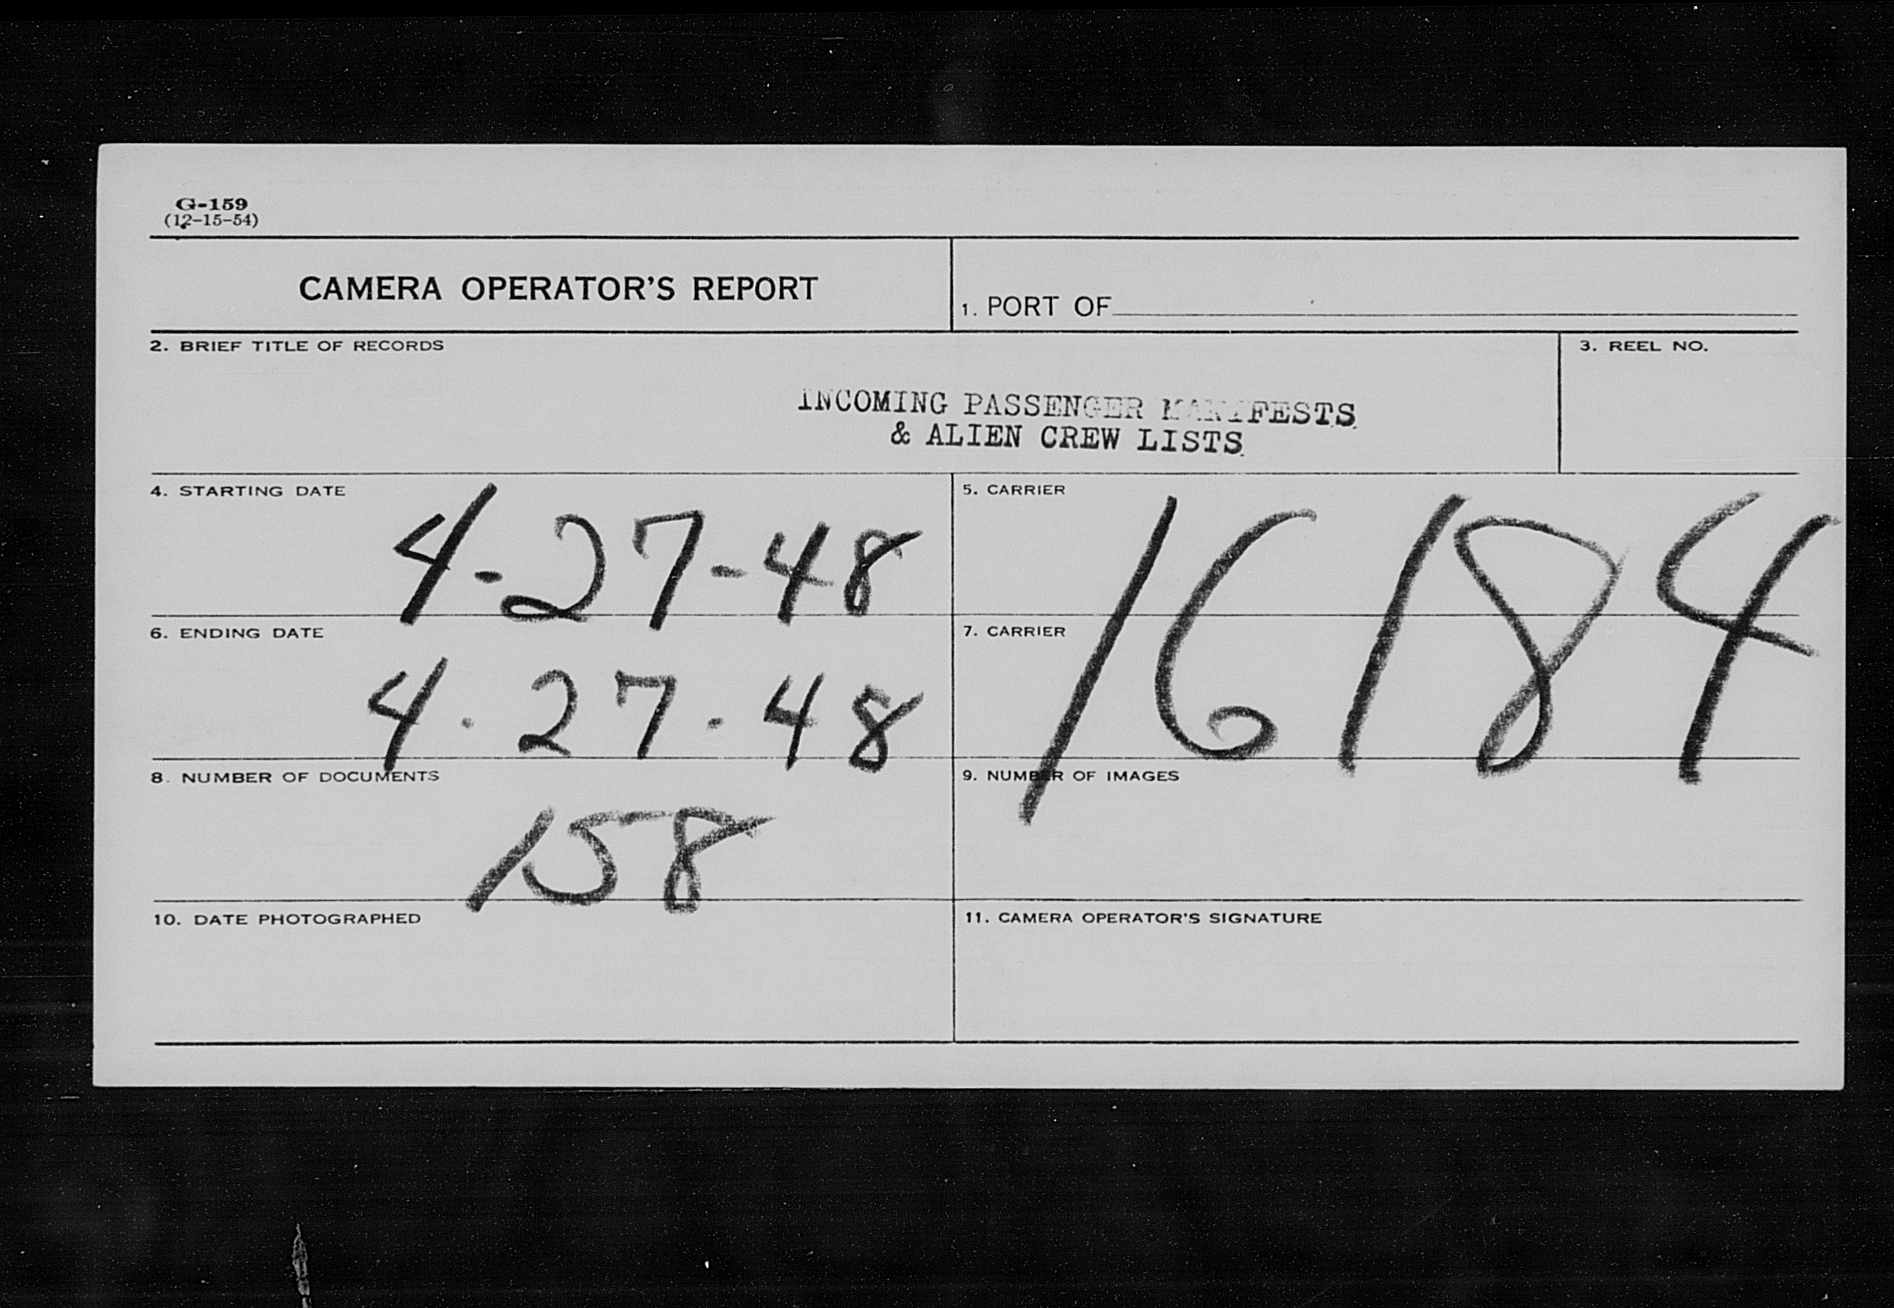 G-159
(12-15-54)
CAMERA OPERATOR'S REPORT
1. PORT OF
2. BRIEF TITLE OF RECORDS
3. REEL NO.
INCOMING PASSENGER MANIFESTS
& ALIEN CREW LISTS
4. STARTING DATE
4-27-48
5. CARRIER
16184
6. ENDING DATE
4-27-48
7. CARRIER
8. NUMBER OF DOCUMENTS
158
9. NUMBER OF IMAGES
10. DATE PHOTOGRAPHED
11. CAMERA OPERATOR'S SIGNATURE